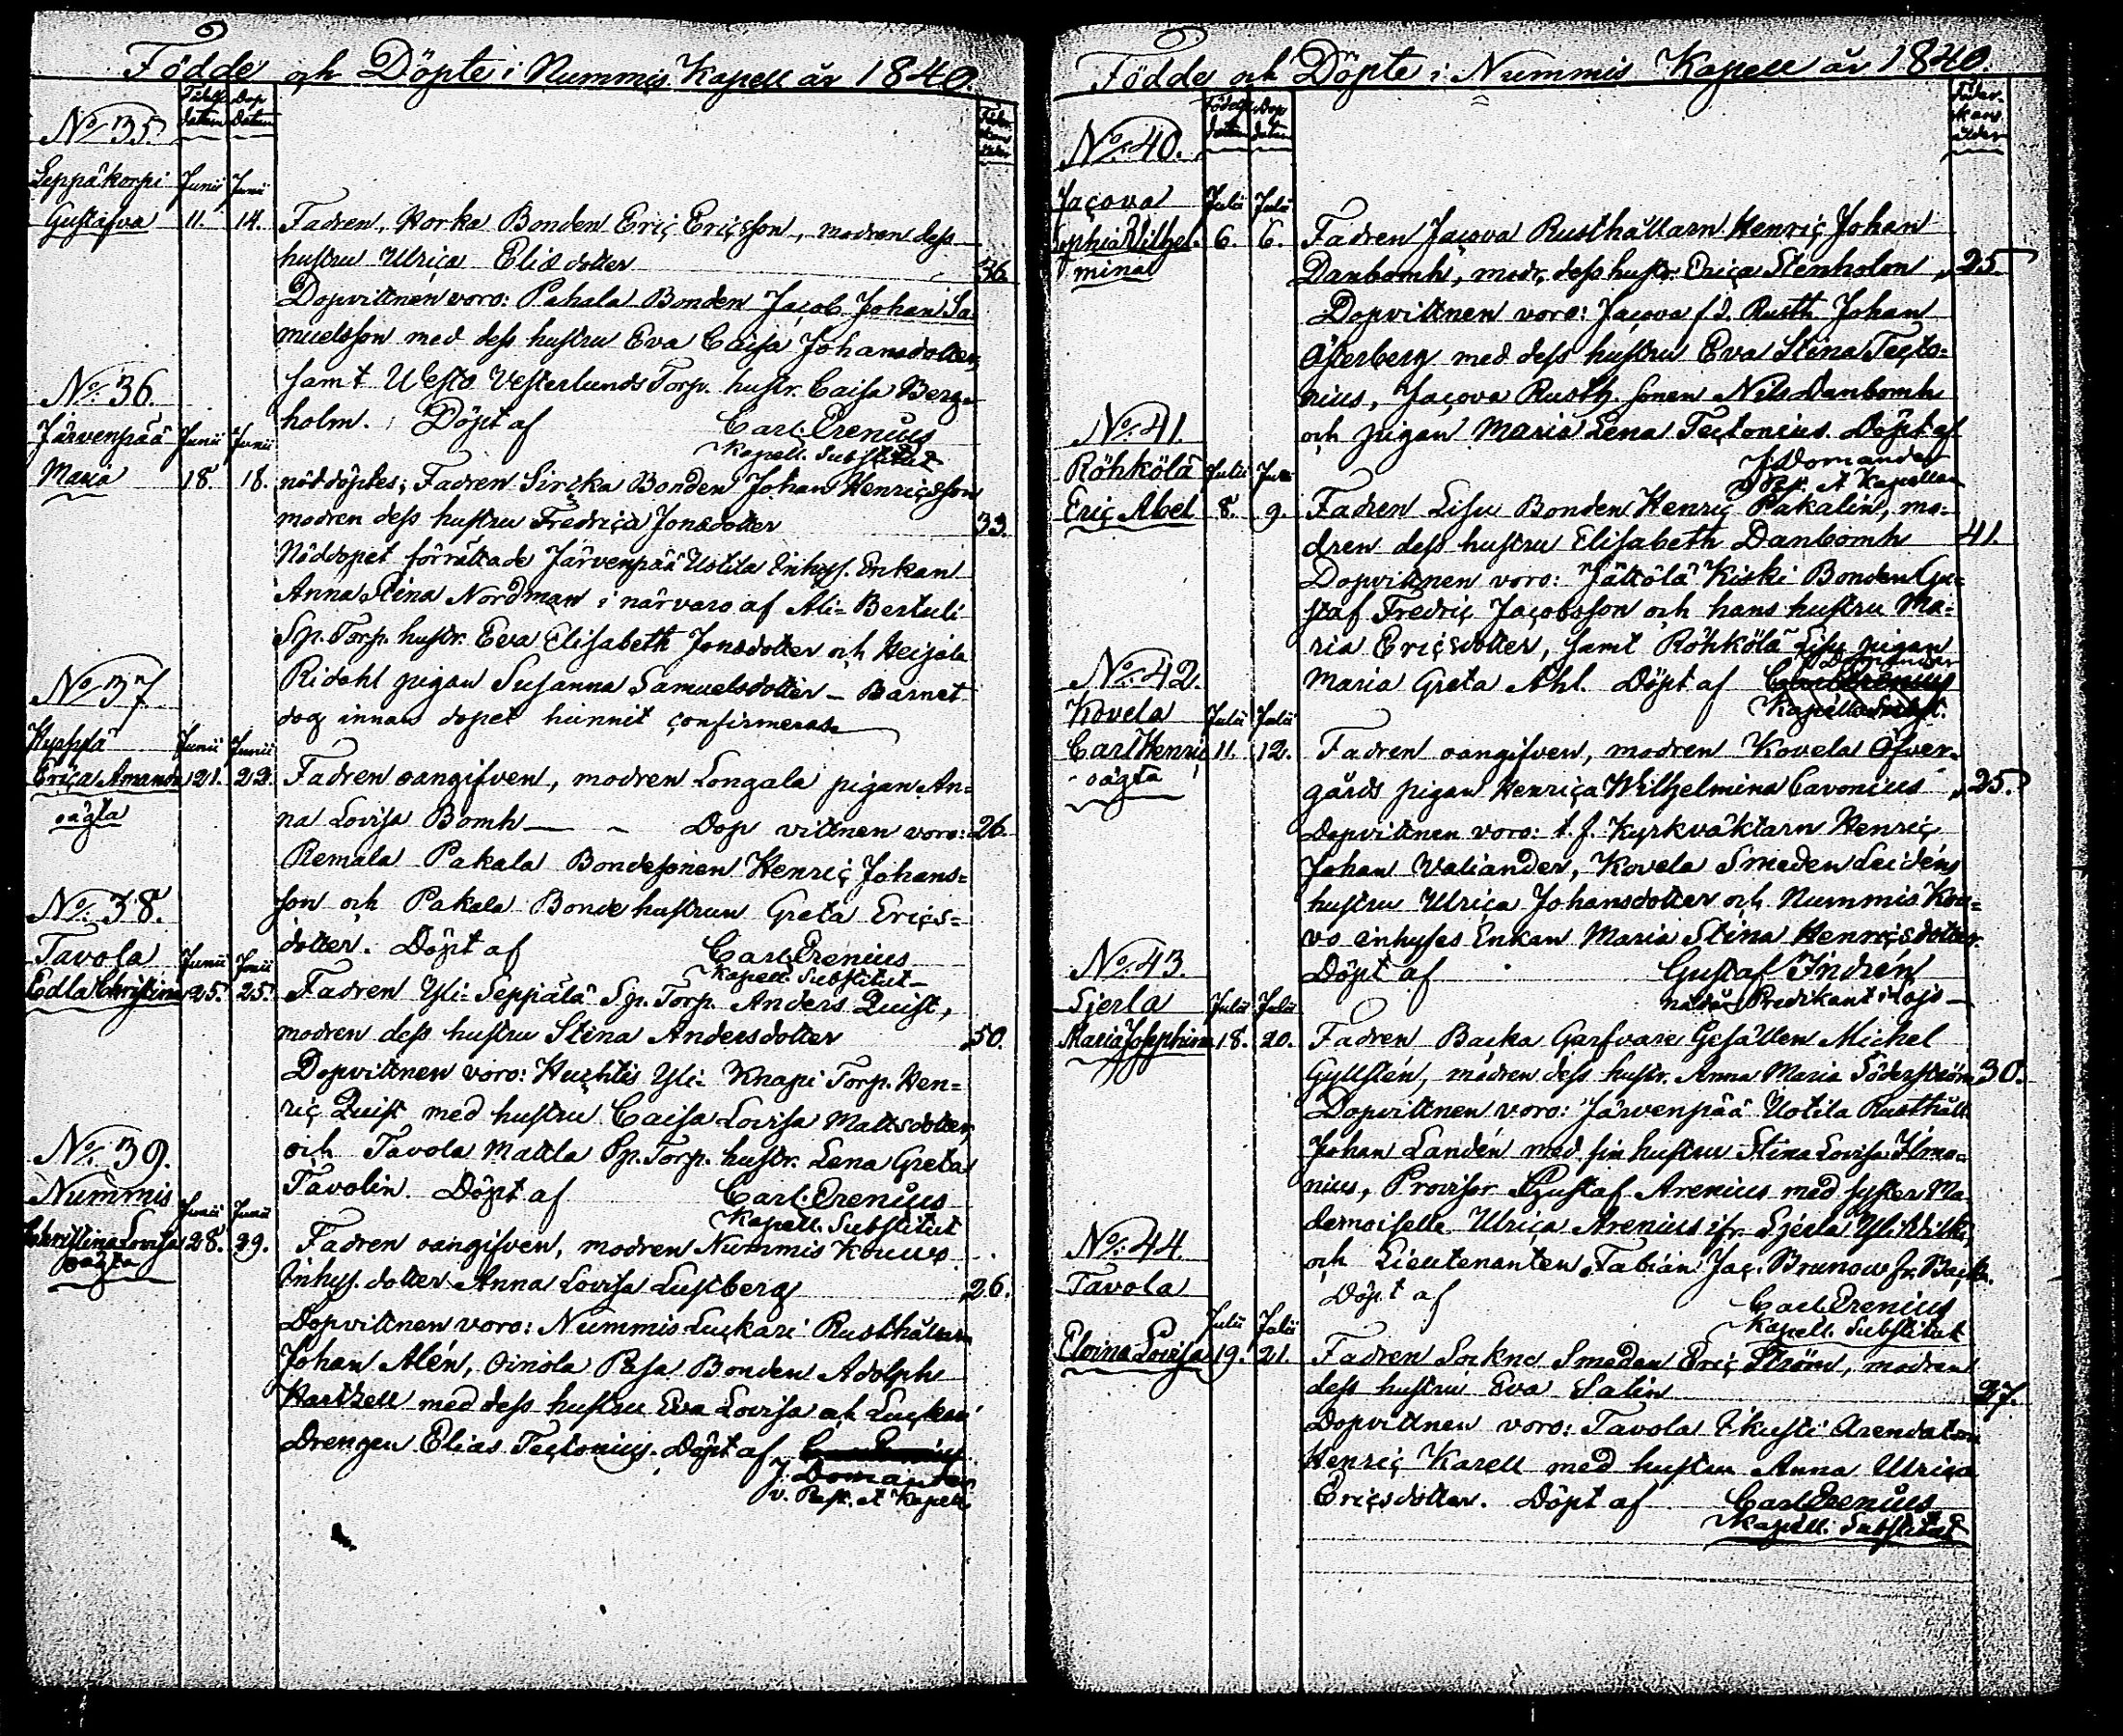 Födde och Döpte i Nummis Kapell år 1840.
Födelse datum
Dop datum
No. 35.
Seppäkorpi Junii Junii
Gustafva 11. 14. Fadren, Horka Bonden Eriç Eriçsson, modren dess
hustru Ulriça Eliædotter 36.
Dopvittnen voro: Pakala Bonden Jaçob Johan Sa-
muelsson med dess hustru Eva Caisa Johansdotter,
samt Vesterlunds Torp. hustr. Caisa Berg-
holm. Döpt af Carl Erenius
Kapell. Substitut
No. 36.
Järvenpää Junii Junii
Maria 18. 18. nöddöptes; Fadren Sirçka Bonden Johan Henriçsson
modren dess hustru Fredriça Jonædotter 33.
Nöddopet förrättade Järvenpää Uotila Inhys. Enkan
Anna Stina Nordman i närvaro af Ali-Bertuli
Sp. Torp. hustr. Eva Elisabeth Jonædotter och Heijala
Ridahl pigan Susanna Samuelsdotter – Barnet
dog innan dopet hunnit confirmeras
No. 37
Hyppä Junii Junii
Eriça Amanda 21. 22. Fadren oangifven, modren Longala pigan An-
oägta
na Lovisa Bomh — Dop vittnen voro: 26.
Remala Pakala Bondesonen Henriç Johans=
son och Pakala Bondehustrun Greta Eriçs=
dotter. Döpt af Carl Erenius
Kapell. Substitut
No. 38.
Tavola Junii Junii
Edla Christina 25. 25. Fadren Yli-Seppälä Sp. Torp. Anders Quist,
modren dess hustru Stina Andersdotter 50.
Dopvittnen voro: Huçhtis Yli-Knapi Torp. Hen=
riç Quist med hustru Caisa Lovisa Mattsdotter,
och Tavola Mattla Sp. Torp. hustr. Lena Greta
Tavolin. Döpt af Carl Erenius
Kapell. Substitut
No. 39.
Nummis Junii Junii
Christina Lovisa 28. 29. Fadren oangifven, modren Nummis Kouvo
oägta
Inhys. dotter Anna Lovisa Lustberg 26.
Dopvittnen voro: Nummis Luçkari Rusthållarn
Johan Alén, Oinola Pæsa Bonden Adolph
Kartzell med dess hustru Eva Lovisa och Luçkari
Drengen Elias Teçtonius. Döpt af
J. Domander
v. Past. et Kapell.
Födde och Döpte i Nummis Kapell år 1840.
Födelse datum
Dop datum
Föder-
skans
ålder
No. 40.
Jaçova Julii Julii
Sophia Wilhel- 6. 6. Fadren Jaçova Rusthållarn Henriç Johan
mina
Danbomh, modr. dess hustr. Eriça Stenholm 25.
Dopvittnen voro: Jaçova f.d. Rusth. Johan
Österberg med dess hustru Eva Stina Teçto=
nius, Jaçova Rusth. sonen Nils Danbomh
och pigan Maria Lena Teçtonius. Döpt af
J. Domander
v. Past. et Kapellan
No. 41.
Röhkölä Julii Julii
Eriç Abel 8. 9. Fadren Lisu Bonden Henriç Pakalin, mo=
dren dess hustru Elisabeth Danbomh 41.
Dopvittnen voro: Jättölä Kiski Bonden Gu=
staf Fredriç Jaçobsson och hans hustru Ma=
ria Eriçsdotter, samt Röhkölä Lisu pigan
Maria Greta Ahl. Döpt af J. Domander
Kapell. Subst.
No. 42.
Kovela Julii Julii
Carl Henriç 11. 12. Fadren oangifven, modren Kovela Öfver-
oägta
gårds pigan Henriça Wilhelmina Cavonius 25.
Dopvittnen voro: t.f. Kyrkväktarn Henriç
Johan Valiander, Kovela Smeden Leidéns
hustru Ulriça Johansdotter och Nummis Kou=
vo inhyses Enkan Maria Stina Henriçsdotter.
Döpt af Gustaf Indrén
nådårs Predikant i Lojo
No. 43.
Sjerla Julii Julii
Maria Josephina 18. 20. Fadren Backa Garfvare Gesällen Michel
Gyllstén, modren dess hustr. Anna Maria Söderström 30.
Dopvittnen voro: Järvenpää Uotila Rusthåll.
Johan Landén med sin hustru Stina Lovisa Ilmo=
nius, Provisor Gustaf Arenius med syster Ma-
demoiselle Ulriça Arenius fr. Sjerla
och Lieutenanten Fabian Jaç. Brunow fr. Backa.
Döpt af Carl Erenius
Kapell. Substitut
No. 44.
Tavola
Julii Julii
Elvina Lovisa 19. 21. Fadren Sockne Smeden Eriç Ström, modren
dess hustru Eva Salin 37.
Dopvittnen voro: Tavola Ekusti Arendatorn
Henriç Karell med hustru Anna Ulriça
Eriçsdotter. Döpt af Carl Erenius
Kapell. Substitut